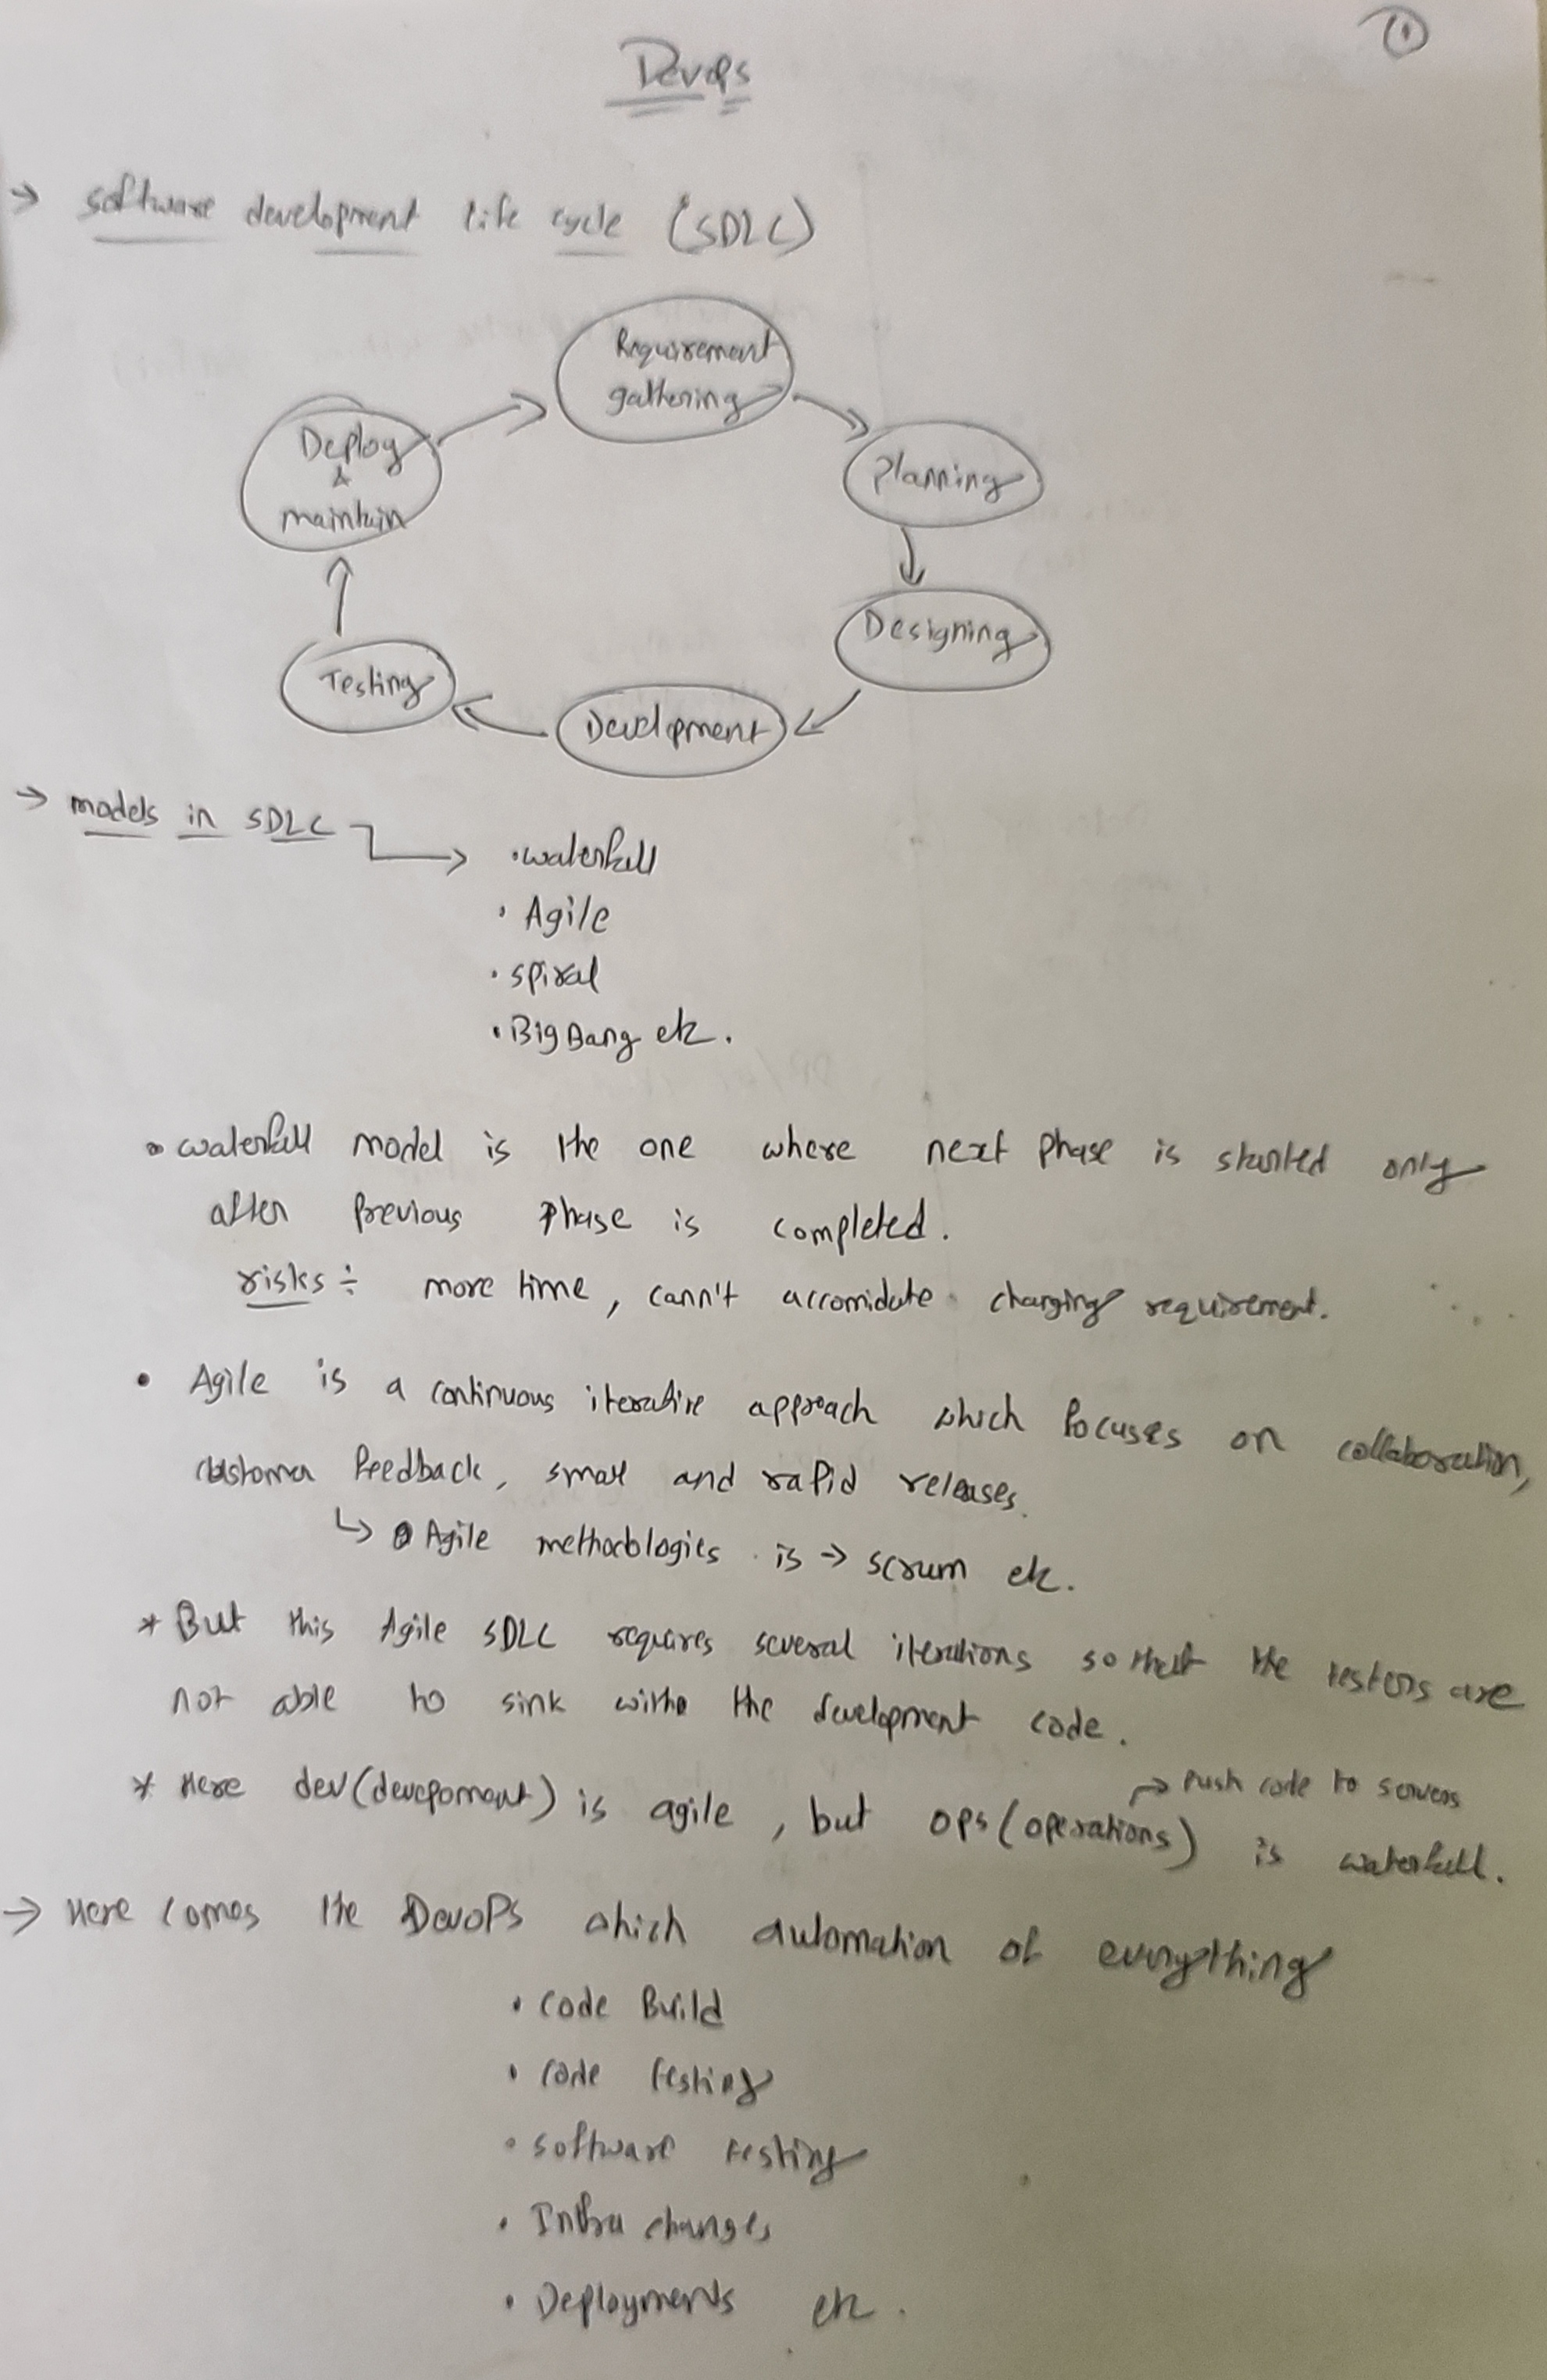 ①
DevOps
→ software development life cycle (SDLC)
Requirement
gathering
Planning
Designing
Development
Testing
Deploy
&
maintain
→ models in SDLC → • waterfall
• Agile
• spiral
• Big Bang etc.
• waterfall model is the one where next phase is started only
after previous phase is completed.
risks ÷ more time, cann't accomidate changing requirement.
• Agile is a continuous iterative approach which focuses on collaboration,
customer feedback, small and rapid releases.
↳ Agile methodologies is → scrum etc.
* But this Agile SDLC requires several iterations so that the testers are
not able to sink with the development code.
→ Push code to servers
* Here dev(devepoment) is agile, but ops(operations) is waterfall.
→ Here comes the DevOPS which automation of everything
• Code Build
• Code testing
• software testing
• Infra changes
• Deployments etc.